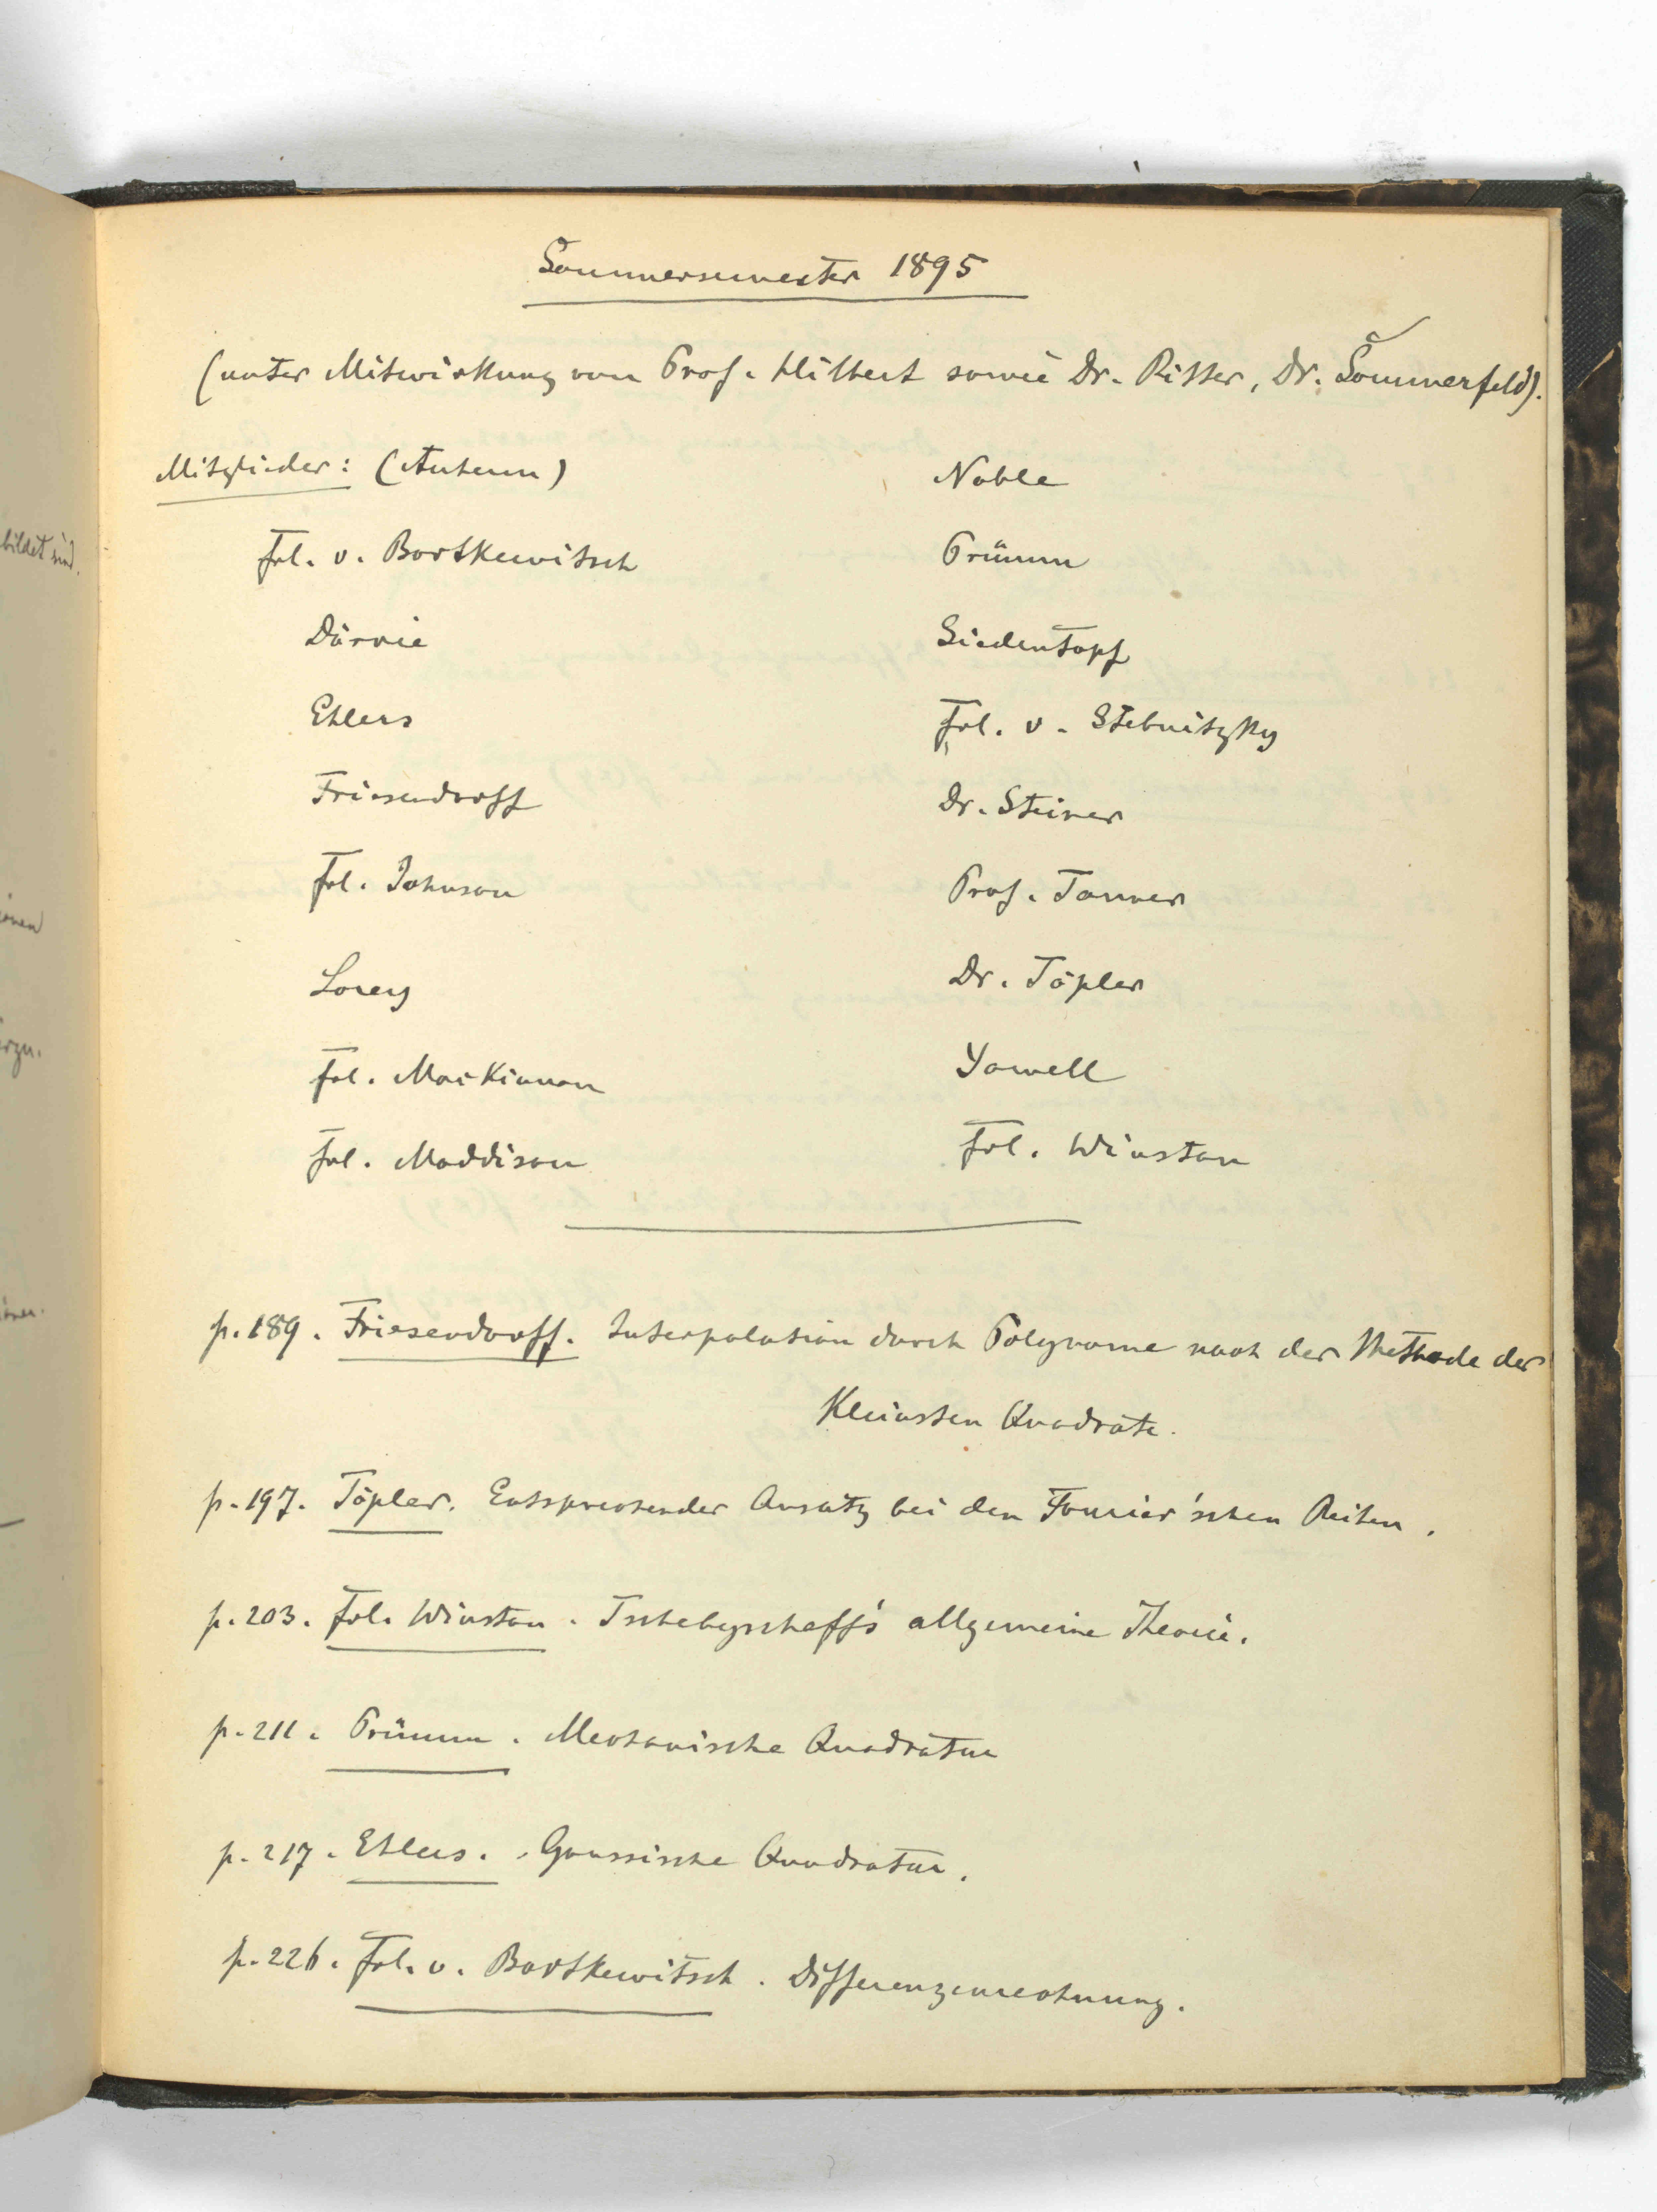 Sommersemester 1895
(unter Mitwirkung von Prof. Hilbert sowie Dr. Ritter, Dr. Sommerfeld).
Mitglieder: (Autoren)
Frl. v. Bortkewitsch
Därrie
Ehlers
Friesendorff
Frl. Johnson
Lorey
Frl. MacKinnon
Frl. Maddison
Noble
Prümm
Siedentopf
Frl. v. Stebnitzky
Dr. Steiner
Prof. Tanner
Dr. Töpler
Yowell
Frl. Winston
p. 189. Friesendorff. Interpolation durch Polynome nach der Methode der
Kleinsten Quadrate.
p. 197. Töpler. Entsprechender Ansatz bei den Fourier'schen Reihen.
p. 203. Frl. Winston. Tschebyscheff's allgemeine Theorie.
p. 211. Prümm. Mechanische Quadratur
p. 217. Ehlers. Gaussische Quadratur.
p. 226. Frl. v. Bortkewitsch. Differenzenrechnung.
bildet sind.